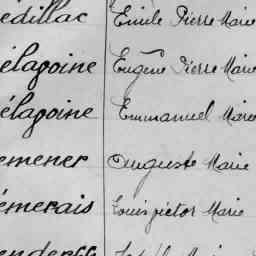 édillac Emile Pierre Marie
élagoine Eugène Pierre Marie
élagoine Emmanuel Marie
emener Auguste Marie
émerais Louis Victor Marie